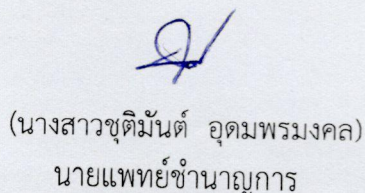 (นางสาวชุติมันต์ อุดมพรมงคล)
นายแพทย์ชำนาญการ